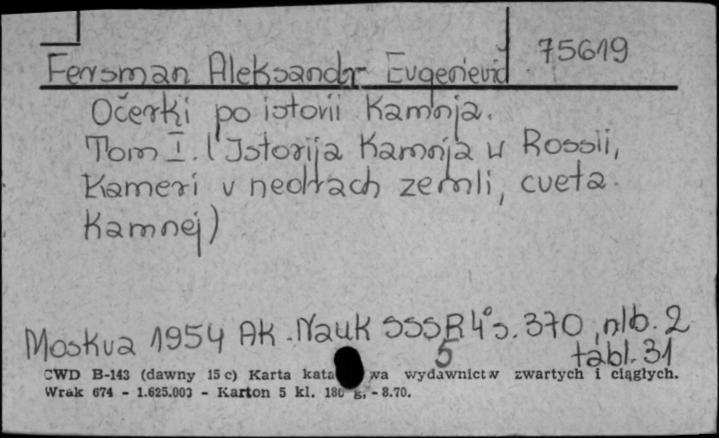 75619
Fersman Aleksandr Evgenievič
Očerki po istorii Kamnja.
Tom I. (Istorija Kamnja w Rossii,
Kameni v nedrach zemli, cveta
Kamnej)
Moskva 1954 AK. Nauk SSSR 4° s. 370, nlb. 2
5 tabl. 31
CWD B-143 (dawny 15 c) Karta kata wa wydawnictw zwartych i ciągłych.
Wrak 674 - 1.625.003 - Karton 5 kl. 180 g, - 8.70.